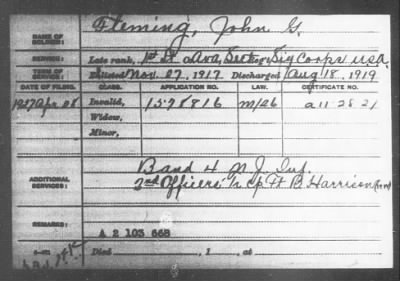 NAME OF SOLDIER: Fleming, John G.
SERVICE: Late rank, 1st Lt Ava, Sect Sig Corps U.S.A.
TERM OF SERVICE: Enlisted Nov. 27, 1917, Discharged Aug 18, 1919
DATE OF FILING. CLASS. APPLICATION NO. LAW. CERTIFICATE NO.
1927 Apr 28 Invalid, 1578816 M/26 A 11 28 21
Widow,
Minor,
ADDITIONAL SERVICES: B and 4 N.J. Inf.
2nd Officers Tr Cp Ft B. Harrison
REMARKS: A 2 103 668
Died , 1 , at